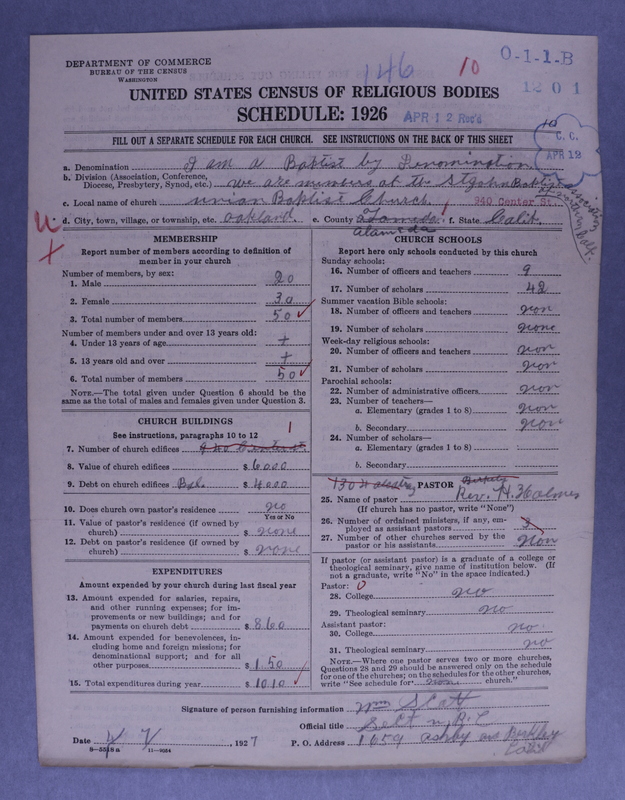 DEPARTMENT OF COMMERCE
BUREAU OF THE CENSUS
WASHINGTON
146
10
O-1-1-B
1201
UNITED STATES CENSUS OF RELIGIOUS BODIES
SCHEDULE: 1926
APR 12 Rec'd
FILL OUT A SEPARATE SCHEDULE FOR EACH CHURCH. SEE INSTRUCTIONS ON THE BACK OF THIS SHEET
C. C.
APR 12
a. Denomination I am a Baptist by Denomination
b. Division (Association, Conference,
Diocese, Presbytery, Synod, etc.) we are members at the St John Baptist
c. Local name of church union Baptist Church 940 Center St.
d. City, town, village, or township, etc. oakland. e. County alameda f. State Calif.
Alameda
MEMBERSHIP
Report number of members according to definition of
member in your church
Number of members, by sex:
1. Male 20
2. Female 30
3. Total number of members 50
Number of members under and over 13 years old:
4. Under 13 years of age +
5. 13 years old and over +
6. Total number of members 50
NOTE.—The total given under Question 6 should be
the same as the total of males and females given under Question 3.
CHURCH BUILDINGS
See instructions, paragraphs 10 to 12
1
7. Number of church edifices 940 Center st
8. Value of church edifices $6000
9. Debt on church edifices Bal. $4000
10. Does church own pastor's residence no
Yes or No
11. Value of pastor's residence (if owned by
church) $ none
12. Debt on pastor's residence (if owned by
church) $ none
EXPENDITURES
Amount expended by your church during last fiscal year
13. Amount expended for salaries, repairs,
and other running expenses; for im-
provements or new buildings; and for
payments on church debt $860
14. Amount expended for benevolences, in-
cluding home and foreign missions; for
denominational support; and for all
other purposes $150
15. Total expenditures during year $1010
CHURCH SCHOOLS
Report here only schools conducted by this church
Sunday schools:
16. Number of officers and teachers 9
17. Number of scholars 42
Summer vacation Bible schools:
18. Number of officers and teachers non
19. Number of scholars none
Week-day religious schools:
20. Number of officers and teachers non
21. Number of scholars non
Parochial schools:
22. Number of administrative officers non
23. Number of teachers—
a. Elementary (grades 1 to 8) non
b. Secondary non
24. Number of scholars—
a. Elementary (grades 1 to 8)
b. Secondary
PASTOR
25. Name of pastor Rev. H. Holmes
(If church has no pastor, write "None")
26. Number of ordained ministers, if any, em-
ployed as assistant pastors
27. Number of other churches served by the
pastor or his assistants non
If pastor (or assistant pastor) is a graduate of a college or
theological seminary, give name of institution below. (If
not a graduate, write "No" in the space indicated.)
Pastor: 0
28. College no
29. Theological seminary no
Assistant pastor:
30. College no.
31. Theological seminary no
NOTE.—Where one pastor serves two or more churches,
Questions 28 and 29 should be answered only on the schedule
for one of the churches; on the schedules for the other churches,
write "See schedule for non church."
Signature of person furnishing information Wm Scott
Official title
Date 4 7, 1927 P. O. Address 1659 Ashby ave Berkley
Calif
8-5518 a 11-9054